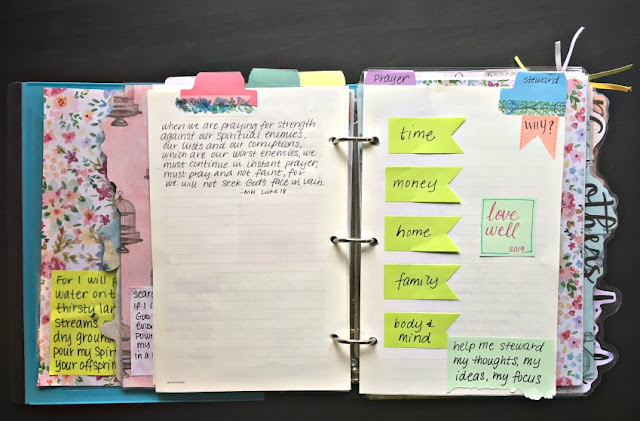 For I will p
water on t
thirsty lan
streams o
dry ground
pour my Spiri
your offsprin
sear
if I c
God
evid
powe
my
in a
when we are praying for strength
against our spiritual enemies,
our lusts and our corruptions,
which are our worst enemies, we
must continue in instant prayer,
must pray and not faint, for
we will not seek God's face in vain.
-MH Luke 18
Prayer
steward
WHY?
time
money
home
family
body &
mind
love
well
2019
help me steward
my thoughts, my
ideas, my focus
others